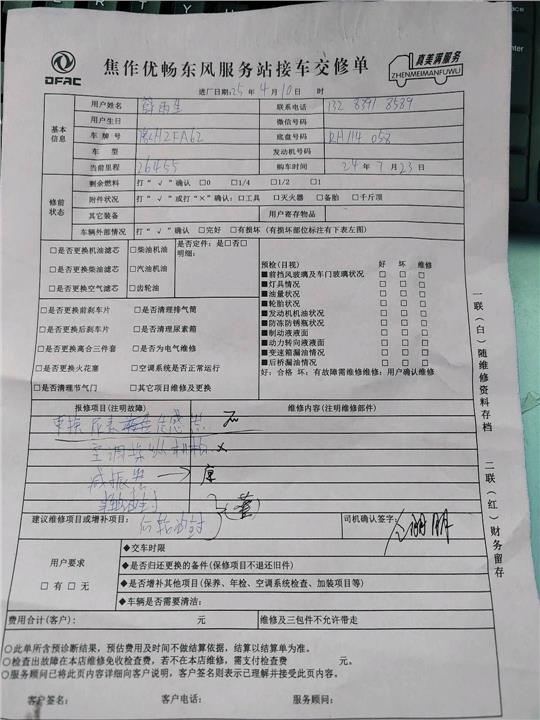 DFAC
焦作优畅东风服务站接车交修单
真美满服务
ZHENMEIMANFUWU
进厂日期:25年4月10日 时
基本信息
用户姓名 联系电话
用户生日 微信号码
车牌号 底盘号码 RH114058
车型 发动机号码
当前里程 26455 购车时间 24年7月23日
修前状态
剩余燃料 打“√”确认 □0 □1/4 □1/2 □1
附件状况 打“√”或打“×”确认:□工具 □灭火器 □备胎 □千斤顶
其它装备 用户寄存物品
车辆外部情况 打“√”确认 □完好 □有损坏(有损坏部位标注有下表左图)
□是否更换机油滤芯 □柴油机油 是否定件:是□否□
□是否更换柴油滤芯 □汽油机油 明细:
□是否更换空气滤芯 □齿轮油
□是否更换前刹车片 □是否清理排气筒
□是否更换后刹车片 □是否清理尿素箱
□是否更换离合三件套 □是否为电气维修
□是否更换火花塞 □空调系统是否正常运行
□是否清理节气门 □其它项目维修及更换
预检(目视) 好 坏 维修
■前挡风玻璃及车门玻璃状况 □ □ □
■灯具情况 □ □ □
■油量状况 □ □ □
■轮胎状况 □ □ □
■发动机机油状况 □ □ □
■防冻防锈瓶状况 □ □ □
■制动液液面 □ □ □
■动力转向液液面 □ □ □
■变速箱漏油情况 □ □ □
■后桥漏油情况 □ □ □
好:合格 坏:有故障需维修维修:用户确认维修
报修项目(注明故障) 维修内容(注明维修部件)
更换尿素 传感器
空调 ×
减振器 → 原
后轮油封
建议维修项目或增补项目: 司机确认签字:
用户要求
□有□无
◆交车时限
◆是否归还更换的备件(保修项目不退还旧件)
◆是否增补其他项目(保养、年检、空调系统检查、加装项目等)
◆车辆是否需要清洁:
费用合计(客户): 元 维修及三包件不允许带走
○此单所含预诊断结果,预估费用及时间不做结算依据,结算以结算单为准。
○检查出故障在本店维修免收检查费,若不在本店维修,需支付检查费 元。
○服务顾问已将此页内容详细向客户说明,客户签名则表示已理解并接受此页内容。
客户签名: 客户电话: 服务顾问:
一联(白)随维修资料存档
二联(红)财务留存